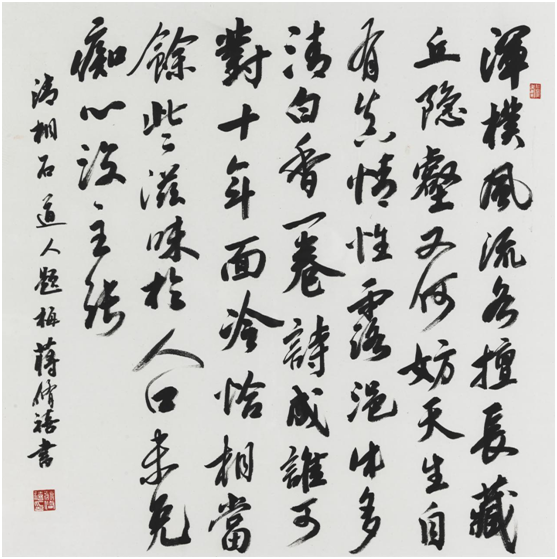 渾樸風流各擅長藏
丘隐壑又何妨天生自
有真情性露浥多
清白香一卷詩成誰可
對十年面冷恰相當
餘些滋味於人口未免
痴心没主张
清相石道人題梅蔣禧書